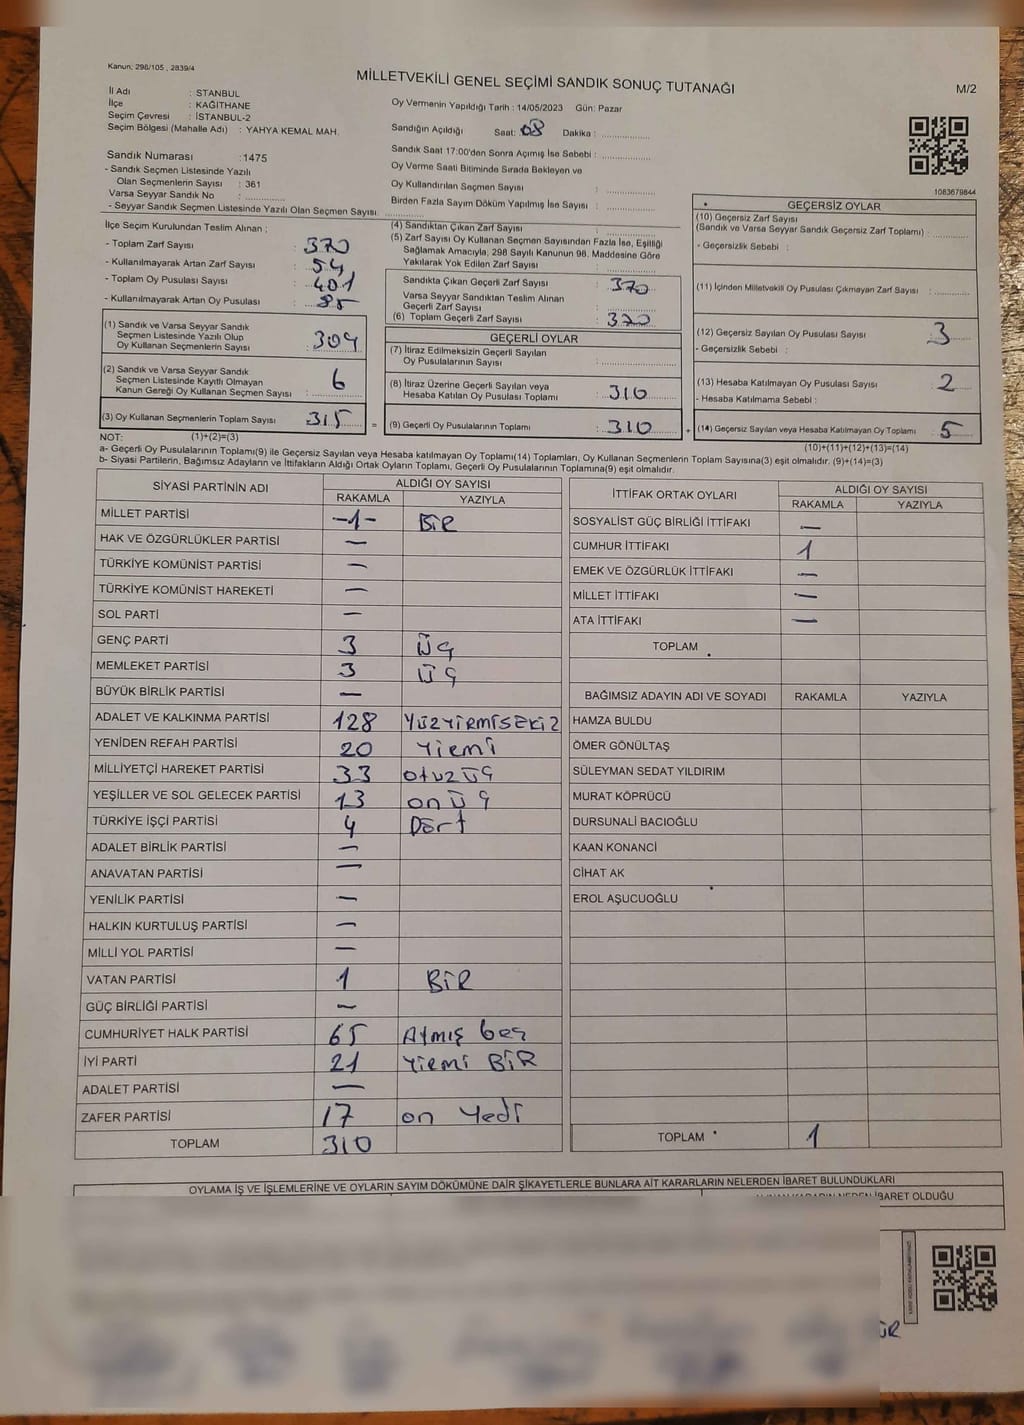 Kanun: 298/105 , 2839/4
MİLLETVEKİLİ GENEL SEÇİMİ SANDIK SONUÇ TUTANAĞI
M/2
İl Adı : STANBUL
İlçe : KAĞITHANE
Seçim Çevresi : İSTANBUL-2
Seçim Bölgesi (Mahalle Adı) : YAHYA KEMAL MAH.
Oy Vermenin Yapıldığı Tarih : 14/05/2023 Gün: Pazar
Sandığın Açıldığı Saat: 08 Dakika :
Sandık Saat 17:00'den Sonra Açımış İse Sebebi :
Oy Verme Saati Bitiminde Sırada Bekleyen ve
Oy Kullandırılan Seçmen Sayısı :
Birden Fazla Sayım Döküm Yapılmış İse Sayısı :
Sandık Numarası :1475
- Sandık Seçmen Listesinde Yazılı
Olan Seçmenlerin Sayısı : 361
Varsa Seyyar Sandık No :
- Seyyar Sandık Seçmen Listesinde Yazılı Olan Seçmen Sayısı:
1083679844
İlçe Seçim Kurulundan Teslim Alınan :
- Toplam Zarf Sayısı : 370
- Kullanılmayarak Artan Zarf Sayısı : 54
- Toplam Oy Pusulası Sayısı : 401
- Kullanılmayarak Artan Oy Pusulası : 85
(1) Sandık ve Varsa Seyyar Sandık
Seçmen Listesinde Yazılı Olup
Oy Kullanan Seçmenlerin Sayısı : 309
(2) Sandık ve Varsa Seyyar Sandık
Seçmen Listesinde Kayıtlı Olmayan
Kanun Gereği Oy Kullanan Seçmen Sayısı : 6
(3) Oy Kullanan Seçmenlerin Toplam Sayısı : 315 =
(4) Sandıktan Çıkan Zarf Sayısı :
(5) Zarf Sayısı Oy Kullanan Seçmen Sayısından Fazla İse, Eşitliği
Sağlamak Amacıyla, 298 Sayılı Kanunun 98. Maddesine Göre
Yakılarak Yok Edilen Zarf Sayısı :
Sandıkta Çıkan Geçerli Zarf Sayısı : 370
Varsa Seyyar Sandıktan Teslim Alınan
Geçerli Zarf Sayısı :
(6) Toplam Geçerli Zarf Sayısı : 370
GEÇERLİ OYLAR
(7) İtiraz Edilmeksizin Geçerli Sayılan
Oy Pusulalarının Sayısı :
(8) İtiraz Üzerine Geçerli Sayılan veya
Hesaba Katılan Oy Pusulası Toplamı : 310
(9) Geçerli Oy Pusulalarının Toplamı : 310 +
GEÇERSİZ OYLAR
(10) Geçersiz Zarf Sayısı
(Sandık ve Varsa Seyyar Sandık Geçersiz Zarf Toplamı) :
- Geçersizlik Sebebi :
(11) İçinden Milletvekili Oy Pusulası Çıkmayan Zarf Sayısı :
(12) Geçersiz Sayılan Oy Pusulası Sayısı : 3
- Geçersizlik Sebebi :
(13) Hesaba Katılmayan Oy Pusulası Sayısı : 2
- Hesaba Katılmama Sebebi :
(14) Geçersiz Sayılan veya Hesaba Katılmayan Oy Toplamı : 5
NOT: (1)+(2)=(3) (10)+(11)+(12)+(13)=(14)
a- Geçerli Oy Pusulalarının Toplamı(9) ile Geçersiz Sayılan veya Hesaba katılmayan Oy Toplamı(14) Toplamları, Oy Kullanan Seçmenlerin Toplam Sayısına(3) eşit olmalıdır. (9)+(14)=(3)
b- Siyasi Partilerin, Bağımsız Adayların ve İttifakların Aldığı Ortak Oyların Toplamı, Geçerli Oy Pusulalarının Toplamına(9) eşit olmalıdır.
SİYASİ PARTİNİN ADI ALDIĞI OY SAYISI
RAKAMLA YAZIYLA
MİLLET PARTİSİ -1- BİR
HAK VE ÖZGÜRLÜKLER PARTİSİ —
TÜRKİYE KOMÜNİST PARTİSİ —
TÜRKİYE KOMÜNİST HAREKETİ —
SOL PARTİ —
GENÇ PARTİ 3 Üç
MEMLEKET PARTİSİ 3 Üç
BÜYÜK BİRLİK PARTİSİ —
ADALET VE KALKINMA PARTİSİ 128 Yüzyirmisekiz
YENİDEN REFAH PARTİSİ 20 Yirmi
MİLLİYETÇİ HAREKET PARTİSİ 33 otuzüç
YEŞİLLER VE SOL GELECEK PARTİSİ 13 onüç
TÜRKİYE İŞÇİ PARTİSİ 4 Dört
ADALET BİRLİK PARTİSİ —
ANAVATAN PARTİSİ —
YENİLİK PARTİSİ —
HALKIN KURTULUŞ PARTİSİ —
MİLLİ YOL PARTİSİ —
VATAN PARTİSİ 1 BİR
GÜÇ BİRLİĞİ PARTİSİ —
CUMHURİYET HALK PARTİSİ 65 Atmış beş
İYİ PARTİ 21 Yirmi BİR
ADALET PARTİSİ —
ZAFER PARTİSİ 17 on Yedi
TOPLAM 310
İTTİFAK ORTAK OYLARI ALDIĞI OY SAYISI
RAKAMLA YAZIYLA
SOSYALİST GÜÇ BİRLİĞİ İTTİFAKI —
CUMHUR İTTİFAKI 1
EMEK VE ÖZGÜRLÜK İTTİFAKI —
MİLLET İTTİFAKI —
ATA İTTİFAKI —
TOPLAM
BAĞIMSIZ ADAYIN ADI VE SOYADI RAKAMLA YAZIYLA
HAMZA BULDU
ÖMER GÖNÜLTAŞ
SÜLEYMAN SEDAT YILDIRIM
MURAT KÖPRÜCÜ
DURSUNALİ BACIOĞLU
KAAN KONANCİ
CİHAT AK
EROL AŞUCUOĞLU
TOPLAM 1
OYLAMA İŞ VE İŞLEMLERİNE VE OYLARIN SAYIM DÖKÜMÜNE DAİR ŞİKAYETLERLE BUNLARA AİT KARARLARIN NELERDEN İBARET BULUNDUKLARI
İBARET OLDUĞU